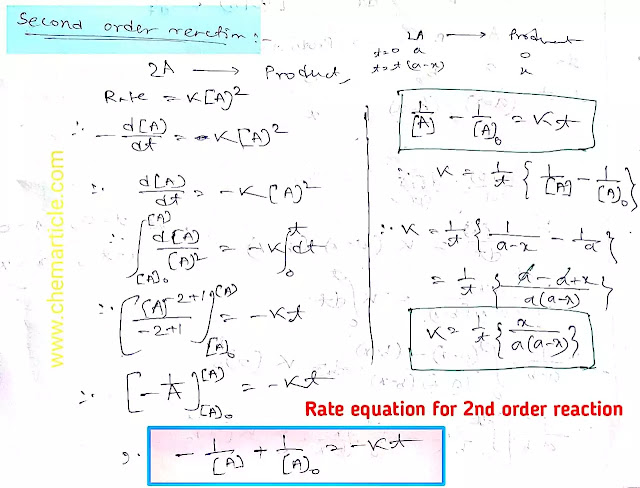 Second order reaction:-
2A ⟶ Product,
Rate = K[A]²
∴ - d[A]/dt = -K[A]²
∴ d[A]/dt = -K[A]²
∴ ∫_{[A]₀}^{[A]} d[A]/[A]² = -K∫₀^t dt
∴ [[A]^{-2+1}/-2+1]_{[A]₀}^{[A]} = -Kt
∴ [-1/A]_{[A]₀}^{[A]} = -Kt
- 1/[A] + 1/[A]₀ = -Kt
2A ⟶ Product
t=0 a 0
t=t (a-x) x
1/[A] - 1/[A]₀ = Kt
∴ K = 1/t {1/[A] - 1/[A]₀}
∴ K = 1/t {1/a-x - 1/a}
= 1/t {a-a+x/a(a-x)}
K = 1/t {x/a(a-x)}
Rate equation for 2nd order reaction
www.chemarticle.com